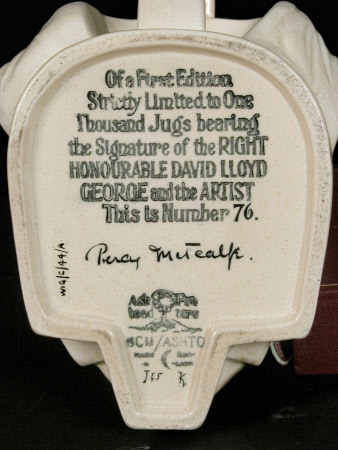 Of a First Edition
Strictly Limited to One
Thousand Jugs bearing
the Signature of the RIGHT
HONOURABLE DAVID LLOYD
GEORGE and the ARTIST
This is Number 76.
Percy Metcalfe.
Ash Pot
tead ters
BCM/ASHTD
J65 K